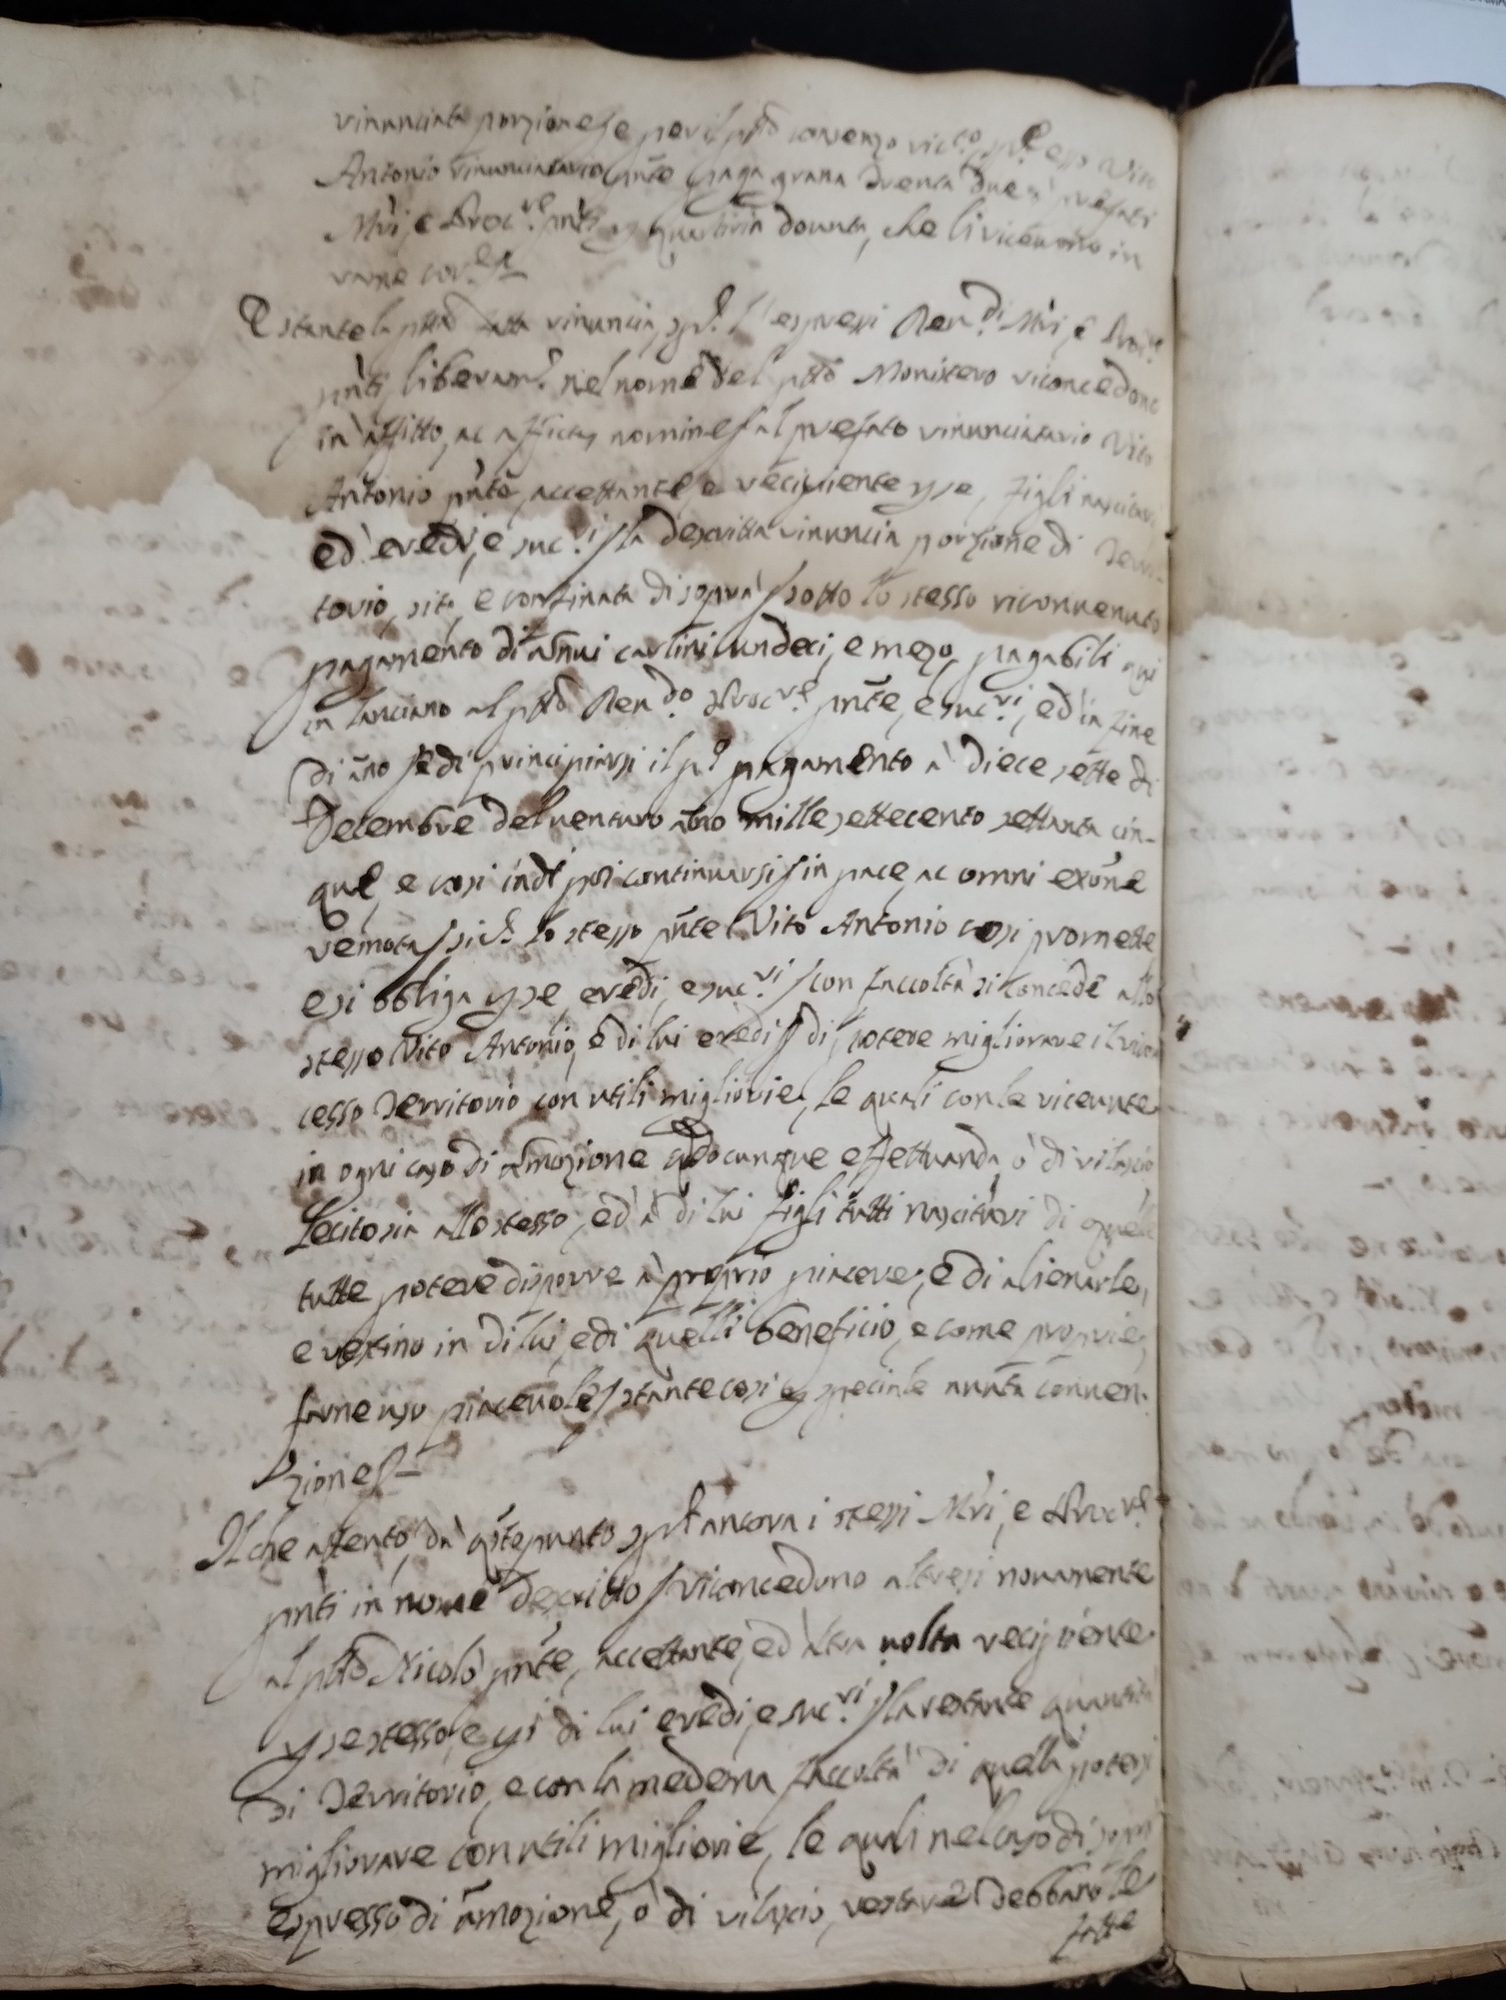 rinunciata porzione, e per il ptto consenso
Antonio rinunciatario pnte paga grana trenta due
Mri, e Proc.re pnti quartiria dovuta, che li ricevono in
Estante la ptta fatta rinuncia, espressi Rev.di Mri, e Proc.re
pnti liberam.e nel nome del ptto Monistero riconcedono
in affitto, ac affictus nomine al prefato rinunciatario Vito
Antonio pnte, accettante, e recipiente p se, figli nascituri
ed' eredi, e suc.ri la descritta rinuncia porzione di Terri-
torio, sita, e confinata di sopra sotto lo stesso riconvenuto
pagamento di annui carlini undeci, e mezo, pagabili qui
in Lanciano al ptto Rev.do Proc.re pnte, e suc.ri, ed' in fine
di ãno e di principiarsi il p.o pagamento à diece sette di
Decembre del venturo ãno mille settecento settanta cin-
que, e così indi poi continuarsi in pace, ac omni exõne
remota lo stesso pnte Vito Antonio così promette
e si obliga p se, eredi, e suc.ri con faccoltà si concede allo
stesso Vito Antonio, e di lui eredi di potere migliorare il
cesso Territorio con utili migliorie, le quali con le ricevute
in ogni caso di amozione qdocunque effettuanda, ò di rilascio
Lecito sia allo stesso, ed' à di lui figli tutti nascituri di quelle
tutte potere disporre à proprio piacere, e di alienarle,
e restino in di lui, e di quelli beneficio, e come proprie,
farne uso piacevole stante così p speciale avuta conven-
zione
Il che attento, da qste punto ancora i stessi Mri, e Proc.re
pnti in nome descritto riconcedono altresi novamente
al ptto Nicolò pnte, accettante, ed' altra volta recipiente
p se stesso, e p di lui eredi, e suc.ri la restante quantità
di Territorio, e con la medema faccoltà di quella potersi
migliorare con utili migliorie, le quali nel caso di sopra
espresso di amozione, ò di rilascio, restare debbano le
fatte